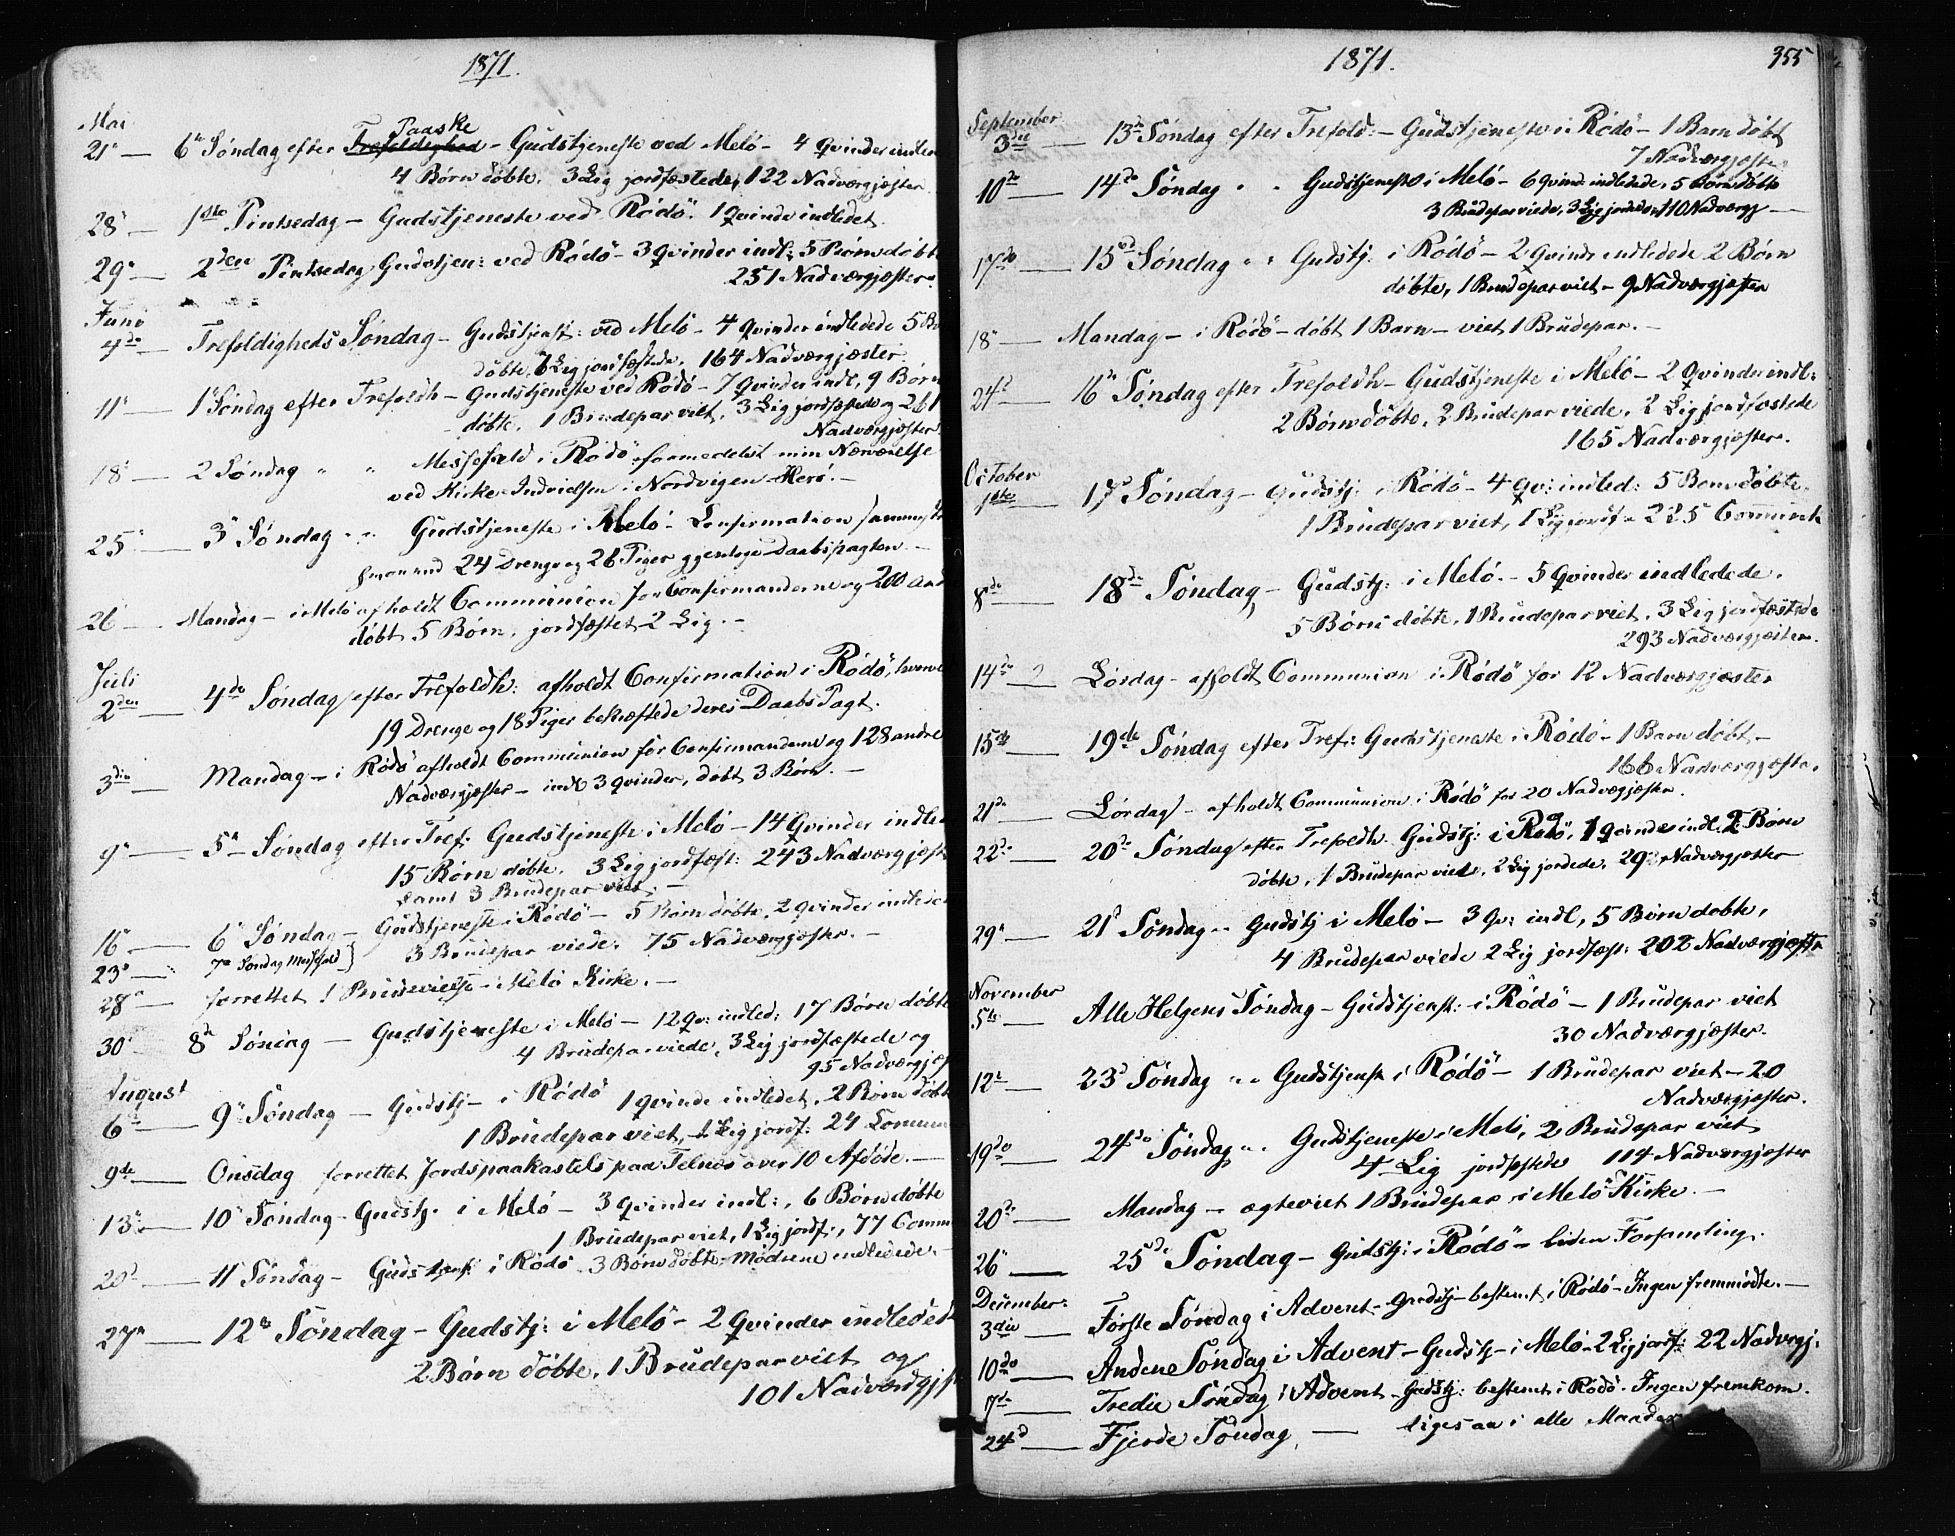 1871.
Mai
Paaske
21de — 6te Søndag efter Trefoldighed – Gudstjeneste ved Melö – 4 Qvinder indlede
4 Børn døbte, 3 Lig jordfæstede, 122 Nadvergjæster.
28 — 1ste Pintsedag – Gudstjeneste ved Rödö. 1 Qvinde indledet.
29 — 2den Pintsedag, Gudstjen: ved Rödö – 3 Qvinder indl: 5 Børn døbte
251 Nadværgjæster.
Juni
4de — Trefoldigheds Søndag – Gudstjenst: ved Melö – 4 Qvinder indledede 5 Bø
døbte, Lig jordfæstede, 164 Nadværgjæster.
11 — 1 Søndag efter Trefoldh – Gudstjeneste ved Rödö – 7 Qvinder indl, 9 Børn
døbte, 1 Brudepar viet, 3 Lig jordfæstede og 261
Nadværgjæster.
18 — 2 Søndag " " Messefald i Rödö formedelst min Nærværelse
ved Kirke-Indvielsen i Nordvigen – Herö. –
25 — 3 Søndag " " Gudstjeneste i Melö – Confirmation
24 Drenge og 26 Piger Daabspagten –
26 — Mandag – i Melö afholdt Communion for Confirmanderne og 200 andr
døbt 5 Børn, jordfæstet 2 Lig. –
Juli
2den — 4de Søndag efter Trefoldh: afholdt Confirmation i Rödö, hvorve
19 Drenge og 18 Piger bekræftede deres Daabs Pagt.
3die — Mandag – i Rödö afholdt Communion for Confirmanderne og 128 andre
Nadværgjæster – indl 3 Qvinder, døbt 3 Børn. –
9 — 5te Søndag efter Tref: Gudstjeneste i Melö – 14 Qvinder indled
15 Børn døbte, 3 Lig jordfæst: 243 Nadværgjæst
samt 3 Brudepar viet. –
16 — 6 Søndag – Gudstjeneste i Rödö – 5 Børn døbte, 2 Qvinder indlede
3 Brudepar viede. 75 Nadværgjæster. –
23 — 7de Søndag Messefald
28 — forrettet 1 Brudevielse – Melö Kirke. –
30 — 8de Søndag — Gudstjeneste i Melö – 12 Qv: indled: 17 Børn døbte
4 Brudepar viede, 3 Lig jordfæstede og
95 Nadværgjæs
August
6te — 9 Søndag — Gudstj – i Rödö 1 Qvinde indledet, 2 Børn døbte
1 Brudepar viet, 1 Lig jordf: 24 Comun
9de — Onsdag forrettet Jordspaakastelse paa Telnes over 10 Afdøde. —
13 — 10 Søndag – Gudstj. i Melö – 3 Qvinder indl:, 6 Børn døbte
1 Brudepar viet, 1 Lig jordf:, 77 Comm
20 — 11 Søndag – Gudstjenst i Rödö 3 Børn døbte – Mødrene indledede. –
27 — 12te Søndag – Gudstj: i Melö – 2 Qvinder indledede
2 Børn døbte, 1 Brudepar viet og
101 Nadværdgjæ
1871.
355
September
3die — 13de Søndag efter Trefold: – Gudstjeneste i Rödö – 1 Barn døbt
7 Nadværgjæster
10de — 14de Søndag " " Gudstjeneste i Melö – 6 Qvind indledede, 5 Børn døbte
3 Brudepar viede, 3 Lig jordede, 110 Nadværgj —
17de — 15de Søndag " " Gudstj: i Rödö – 2 Qvinde indledede 2 Børn
døbte, 1 Brudepar viet – 9 Nadværgjæster
18 Mandag – i Rödö – døbt 1 Barn – viet 1 Brudepar. –
24 — 16de Søndag efter Trefoldh – Gudstjeneste i Melö – 2 Qvinder indl:
2 Børn døbte, 2 Brudepar viede, 2 Lig jordfæstede
165 Nadværgjæster.
October
1ste — 17 Søndag – Gudstj: i Rödö – 4 Qv: indled: 5 Børn døbte.
1 Brudepar viet, 1 Lig jordf – 225 Comunk
8de — 18de Søndag – Gudstj: i Melö. – 5 Qvinder indledede.
5 Børn døbte, 1 Brudepar viet, 3 Lig jordfæstede
293 Nadværgjæster.
14de — Lørdag – afholdt Communion i Rödö for 12 Nadværgjæster
15de — 19de Søndag efter Tref: Gudstjeneste i Rödö – 1 Barn døbt –
166 Nadværgjæste.
21de — Lørdag – afholdt Communion i Rödö for 20 Nadvægjæster.
22de — 20de Søndag efter Trefoldh. Gudstj: i Rödö, 1 Qvinde indl. 2 Børn
døbte, 1 Brudepar viet, 2 Lig jordede, 29 Nadværgjæster
29 — 21 Søndag " Gudstj i Melö – 3 Qv: indl, 5 Børn døbte,
4 Brudepar viede 2 Lig jordfæst: 202 Nadværgjæster
November
5te — Alle Helgens Søndag – Gudstjenst: i Rödö – 1 Brudepar viet
30 Nadværgjæster.
12te — 23 Søndag " " Gudstjenste i Rödö – 1 Brudepar viet – 20
Nadværgjæster.
19de — 24de Søndag " Gudstjeneste i Melö, 2 Brudepar viet
4 Lig jordfæstede 114 Nadværgjæster
20de — Mandag – ægteviet 1 Brudepar i Melö Kirke. –
26 — 25de Søndag – Gudstj: i Rödö – liden Forsamling.
December:
3die — Første Søndag i Advent – Gudstj – bestemt i Rödö – Ingen fremmødte. –
10de — Anden Søndag i Advent – Gudstj – i Melö – 2 Lig jordf: 22 Nadvergj:
17de — Tredie Søndag i Advent – Gudstj: bestemt i Rödö. Ingen fremkom.
24de — Fjerde Søndag, — ligesaa i alle Maader